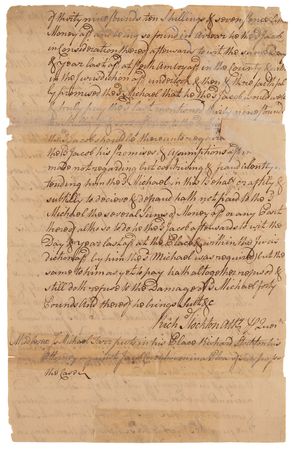 of thirty nine pounds ten Shillings & seven pence
Money aff and being so found in Arrear he the sd Jacob
in Consideration thereof afterwards to wit the same Day
& year last aff at Perth Amboy aff in the County &
in the Jurisdiction aff undertook & then & there faithfully
promised the sd Michael that he the sd Jacob
mentioned thirty nine pounds
the sd Jacob should be thereunto
the sd Jacob his Promises & Assumptions aff
made not regarding but contriving & fraudulently
tending him the sd Michael in this behalf craftily &
subtilly to deceive & defraud hath not paid to the sd
Michael the several Sums of Money aff or any Part
thereof altho so to do he the sd Jacob afterwards to wit the
Day & year last aff at the Place aff within the Juris
diction aff by him the sd Michael was required but the
same to him as yet to pay hath altogether refused &
still doth refuse to the Damage of sd Michael forty
Pounds & thereof he brings Suit &c
Richd Stockton Atty
Michael puts in his Place Richard Stockton his
Attorney against Jacob in a Plea of Trespass on
the Case